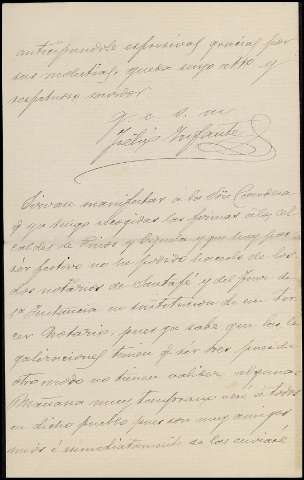 anticipandole espresivas gracias por
sus molestias, queda suyo atto y
respetuoso servidor
q. b. s. m.
Felix Infante
Sirvase manifestar a la Sra Condesa
q ya tengo recogidas las firmas de los al
caldes de Pinos y y que hoy por
ser festivo no he podido hacerlo de los
dos notarios de Santafé y del Juez de
1ª Instancia en sustitución de un ter
cer Notario, pues ya sabe que las le
galizaciones tienen q ser tres pues de
otro modo no tienen validez alguna.
Mañana muy temprano veré á todos
en dicho pueblo pues son muy amigos
mios é inmediatamente se las enviaré